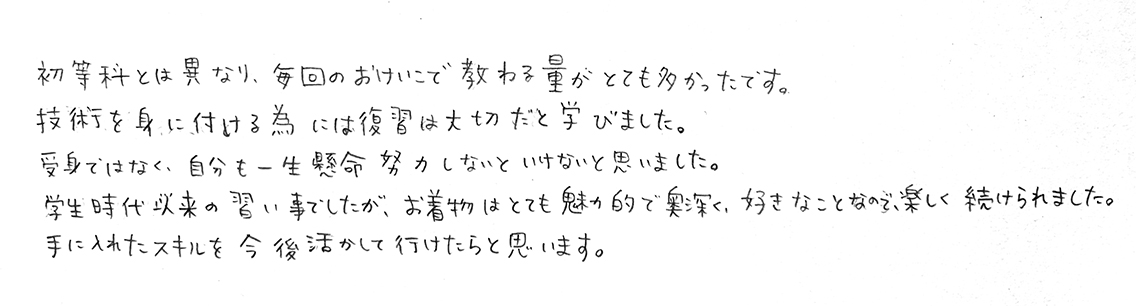 初等科とは異なり、毎回のおけいこで教わる量がとても多かったです。
技術を身に付ける為には復習は大切だと学びました。
受身ではなく、自分も一生懸命努力しないといけないと思いました。
学生時代以来の習い事でしたが、お着物はとても魅力的で奥深く、好きなことなので、楽しく続けられました。
手に入れたスキルを今後活かして行けたらと思います。